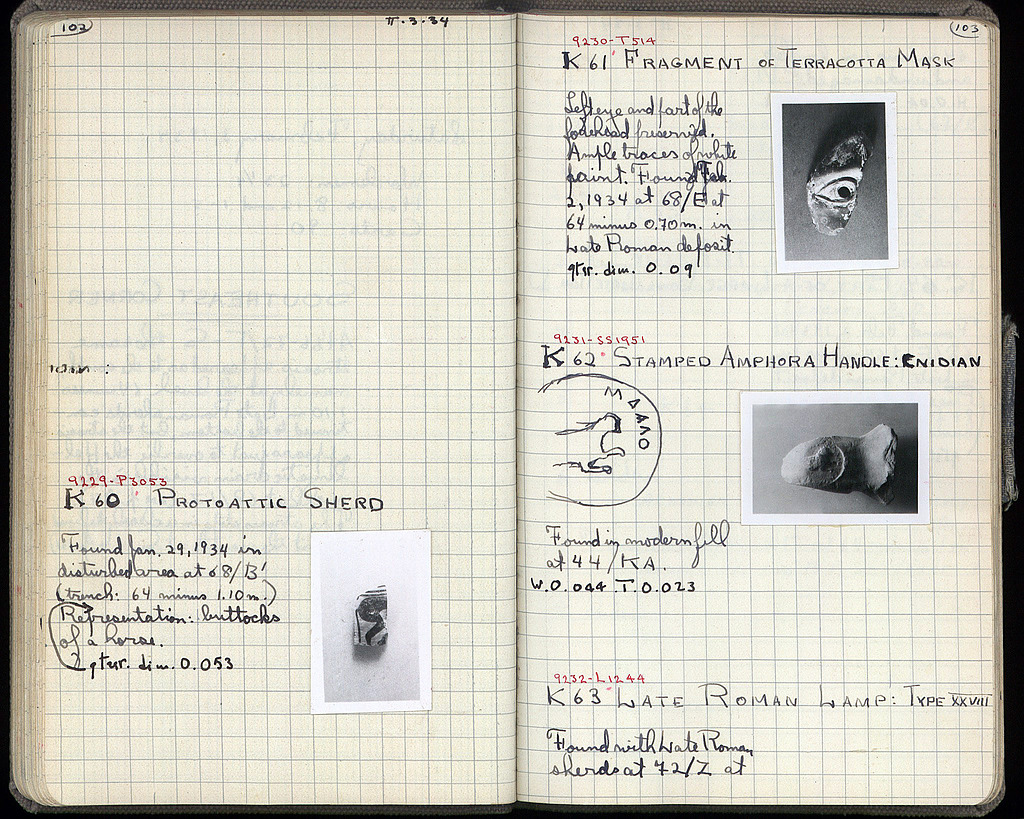 102
II.3.34
9229-P3053
K 60 PROTOATTIC SHERD
Found Jan. 29, 1934 in
disturbed area at 68/B'
(trench: 64 minus 1.10 m.)
Representation: buttocks
of a horse.
gtsr. dim. 0.053
103
9230-T514
K 61 FRAGMENT OF TERRACOTTA MASK
Left eye and part of the
forehead preserved.
Ample traces of white
paint. Found Feb.
2, 1934 at 68/E at
64 minus 0.70 m. in
Late Roman deposit.
gtsr. dim. 0.09
9231-SS1951
K 62 STAMPED AMPHORA HANDLE: CNIDIAN
ΜΔΑΛΟ
Found in modern fill
at 44/KA.
W. 0.044 T. 0.023
9232-L1244
K 63 LATE ROMAN LAMP: TYPE XXVIII
Found with Late Roman
sherds at 72/Z at